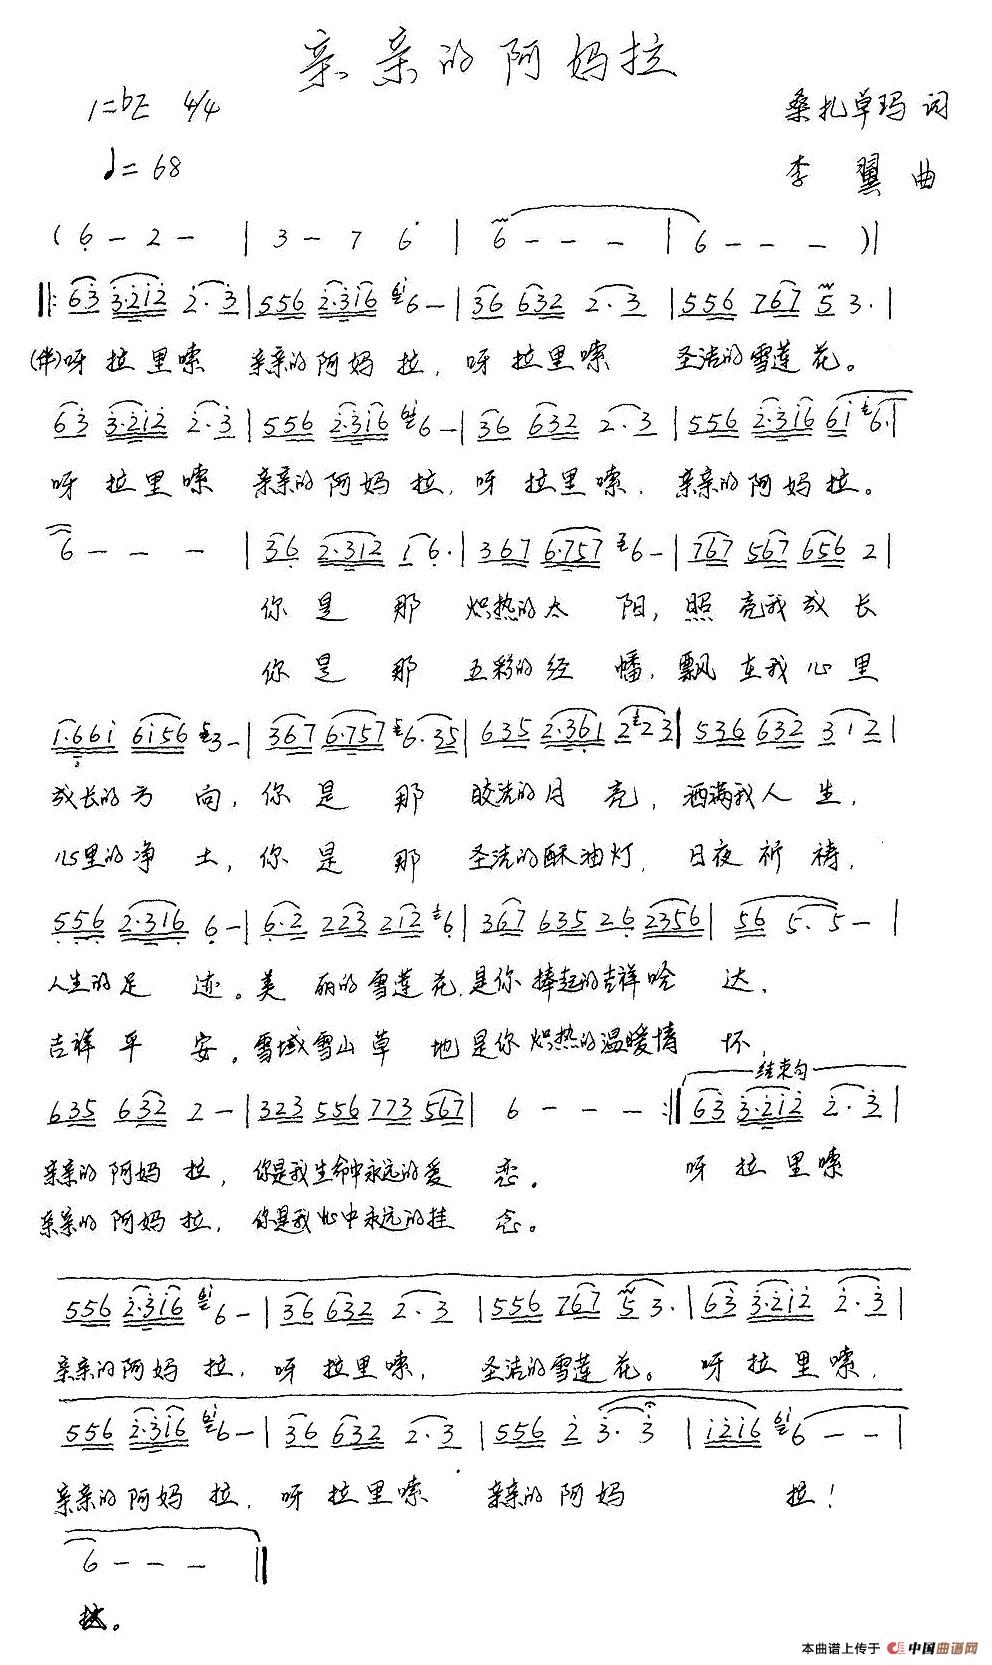 亲亲的阿妈拉
1=bE 4/4
桑扎卓玛 词
♩=68
李翼 曲
( 6 - 2 - | 3 - 7 6 | 6 - - - | 6 - - - )|
‖: 63 3·212 2·3 | 556 2·316 6 - | 36 632 2·3 | 556 767 5 3· |
(伴)呀拉里嗦 亲亲的阿妈拉，呀拉里嗦 圣洁的雪莲花。
63 3·212 2·3 | 556 2·316 6 - | 36 632 2·3 | 556 2·316 61 6· |
呀拉里嗦 亲亲的阿妈拉，呀拉里嗦，亲亲的阿妈拉。
6 - - - | 36 2·312 16· | 367 6·757 6 - | 767 567 656 2 |
你是那 炽热的太阳，照亮我成长
你是那 五彩的经幡，飘在我心里
1·661 6156 3 - | 367 6·757 6·35 | 635 2·361 223 | 536 632 312 |
成长的方向，你是那 皎洁的月亮，洒满我人生，
心里的净土，你是那 圣洁的酥油灯，日夜祈祷，
556 2·316 6 - | 6·2 223 212 6 | 367 635 26 2356 | 56 5·5 - |
人生的足迹。美丽的雪莲花，是你捧起的吉祥哈达，
吉祥平安。雪域雪山草地是你炽热的温暖情怀，
结束句
635 632 2 - | 323 556 773 567 | 6 - - - :‖ 63 3·212 2·3 |
亲亲的阿妈拉，你是我生命中永远的爱恋。 呀拉里嗦
亲亲的阿妈拉，你是我心中永远的挂念。
556 2·316 6 - | 36 632 2·3 | 556 767 5 3· | 63 3·212 2·3 |
亲亲的阿妈拉，呀拉里嗦，圣洁的雪莲花。呀拉里嗦，
556 2·316 6 - | 36 632 2·3 | 556 2 3·3 | 1216 6 - - |
亲亲的阿妈拉，呀拉里嗦 亲亲的阿妈 拉！
6 - - - ‖
拉。
本曲谱上传于 中国曲谱网